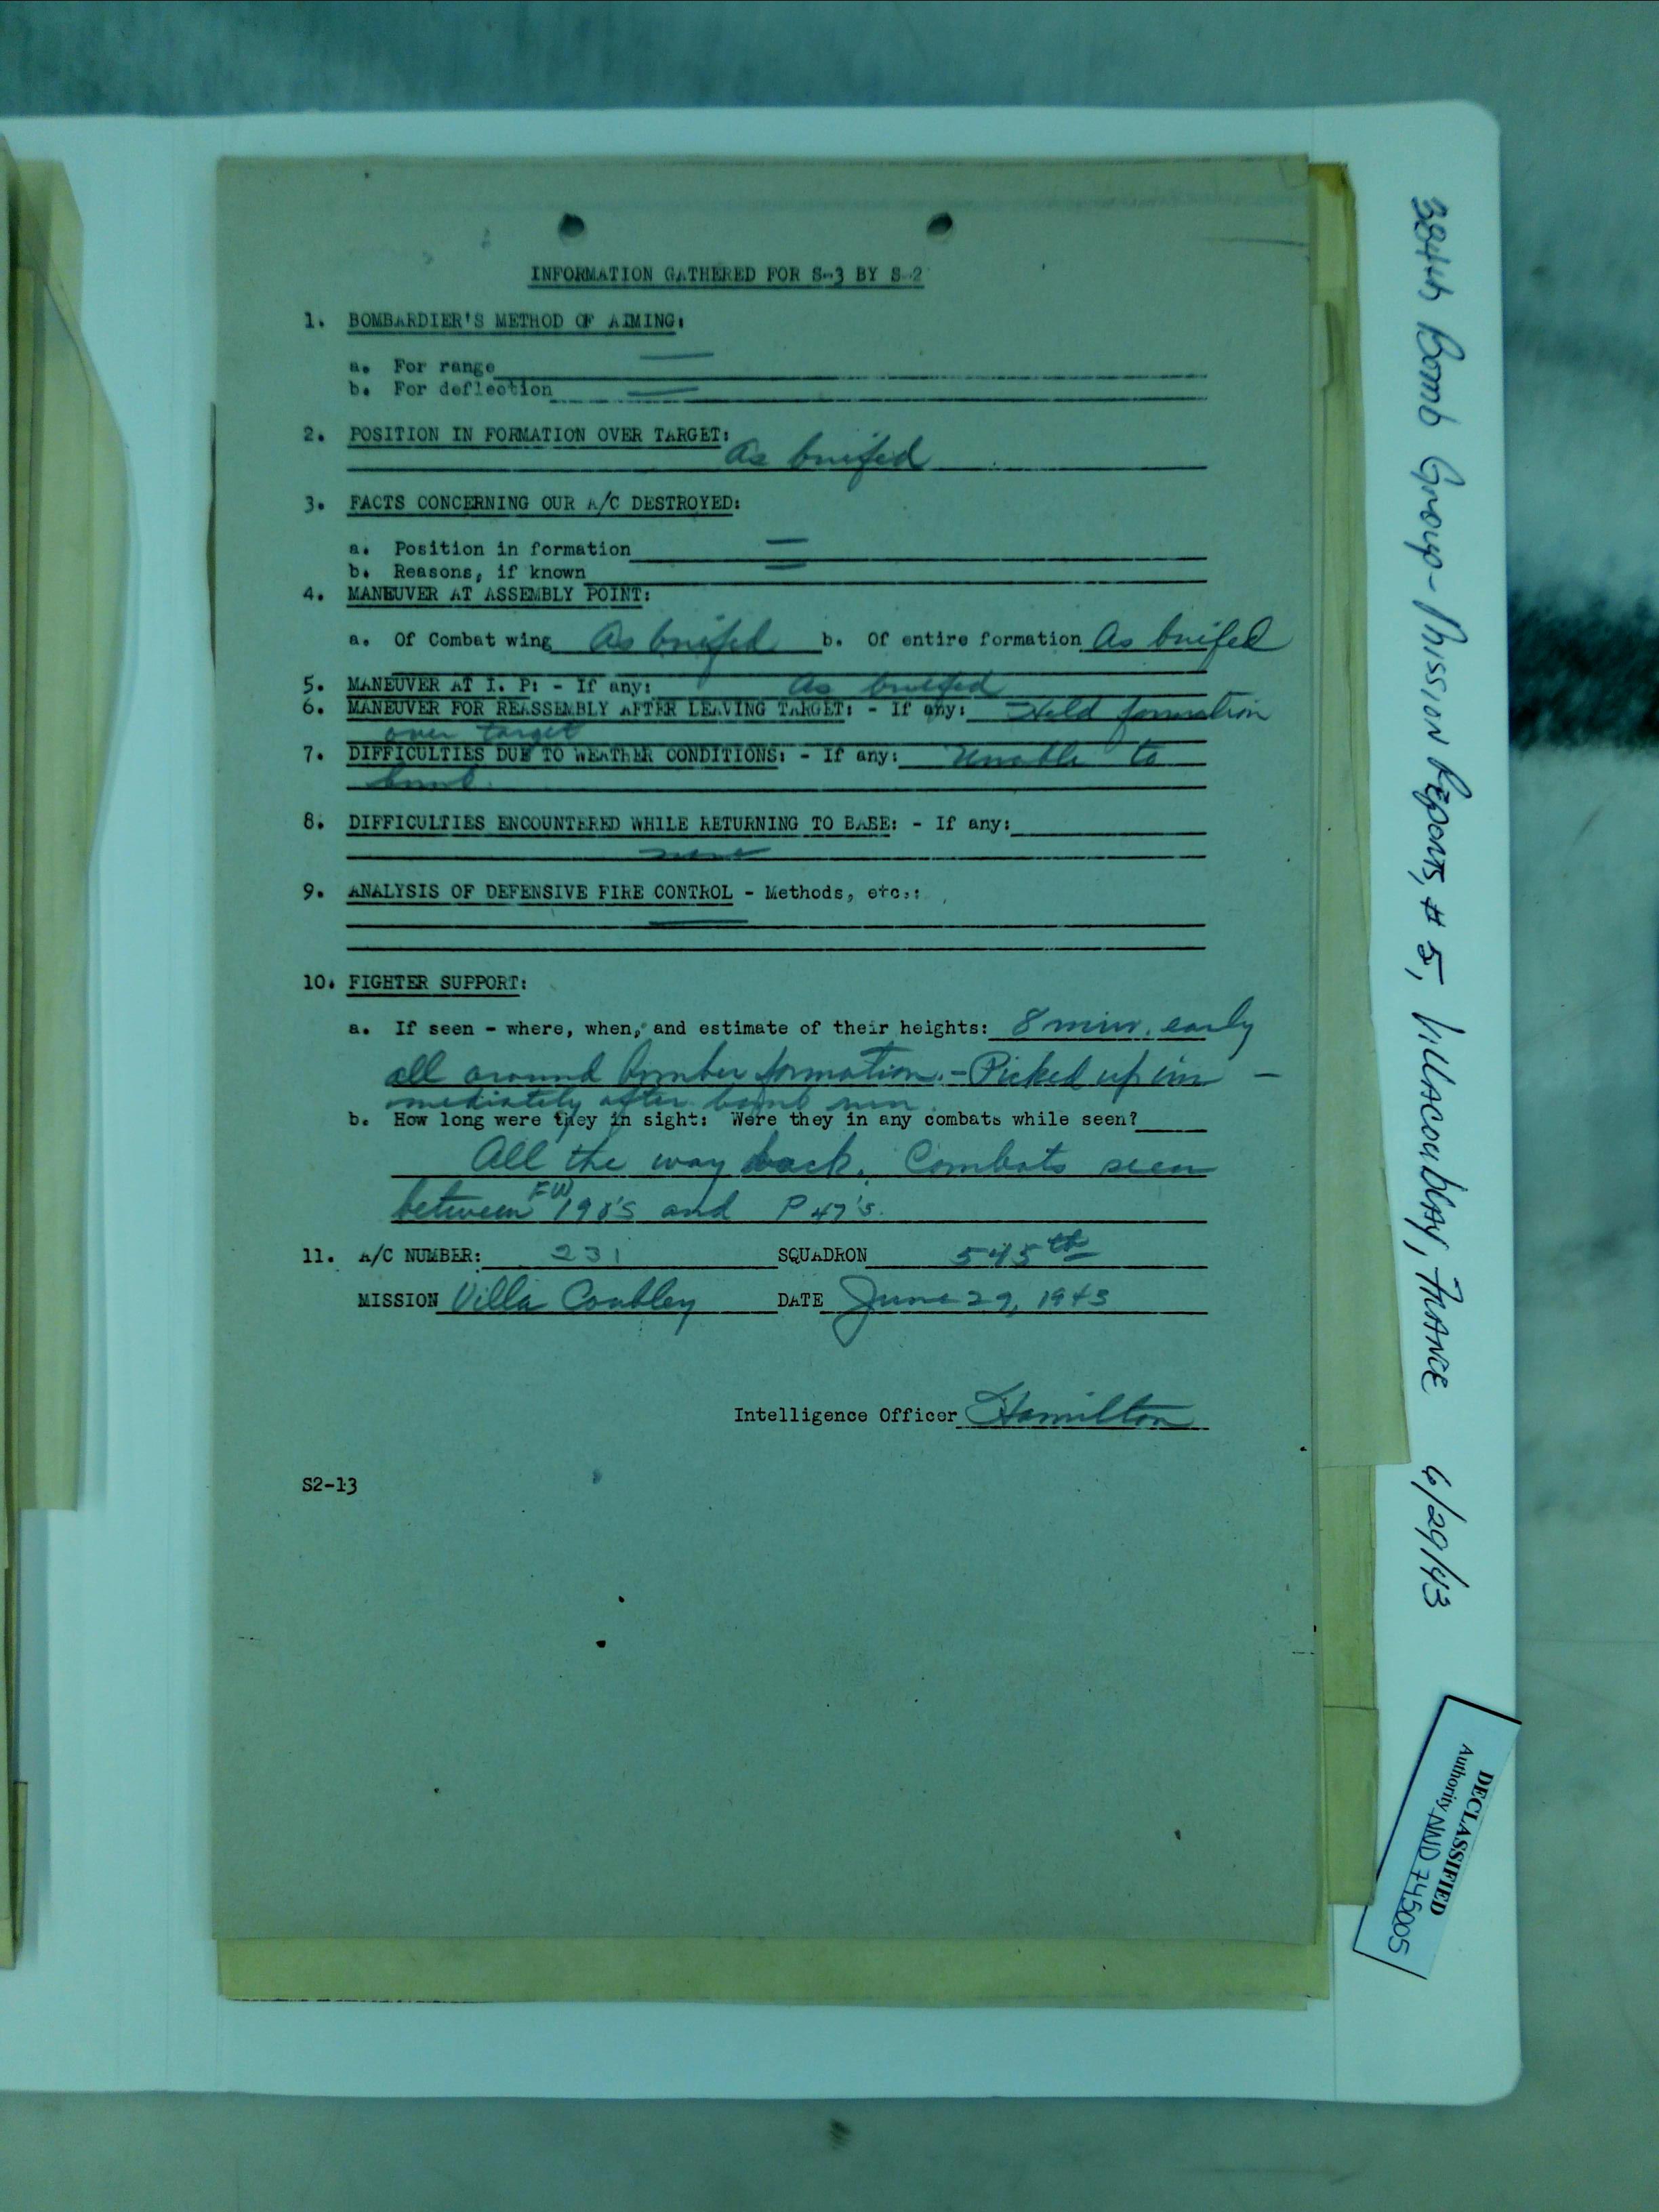 INFORMATION GATHERED FOR S-3 BY S-2
1. BOMBARDIER'S METHOD OF AIMING:
a. For range —
b. For deflection —
2. POSITION IN FORMATION OVER TARGET:
As briefed
3. FACTS CONCERNING OUR A/C DESTROYED:
a. Position in formation —
b. Reasons, if known —
4. MANEUVER AT ASSEMBLY POINT:
a. Of Combat wing As briefed b. Of entire formation As briefed
5. MANEUVER AT I. P: - If any: As briefed
6. MANEUVER FOR REASSEMBLY AFTER LEAVING TARGET: - If any: Held formation
over target
7. DIFFICULTIES DUE TO WEATHER CONDITIONS: - If any: Unable to
bomb.
8. DIFFICULTIES ENCOUNTERED WHILE RETURNING TO BASE: - If any:
none
9. ANALYSIS OF DEFENSIVE FIRE CONTROL - Methods, etc.:
—
10. FIGHTER SUPPORT:
a. If seen - where, when, and estimate of their heights: 8 min. early
all around bomber formation. - Picked up im -
mediately after bomb run.
b. How long were they in sight: Were they in any combats while seen?
All the way back. Combats seen
between FW 190's and P 47's.
11. A/C NUMBER: 231 SQUADRON 545th
MISSION Villa Coubley DATE June 29, 1943
Intelligence Officer Hamilton
S2-13
384th Bomb Group - Mission Reports, # 5, Villacoublay, France 6/29/43
DECLASSIFIED
Authority NND 745005